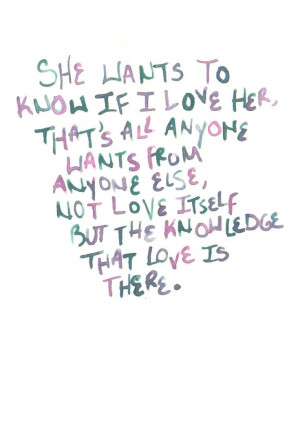 SHE WANTS TO
KNOW IF I LOVE HER,
THAT'S ALL ANYONE
WANTS FROM
ANYONE ELSE,
NOT LOVE ITSELF
BUT THE KNOWLEDGE
THAT LOVE IS
THERE.